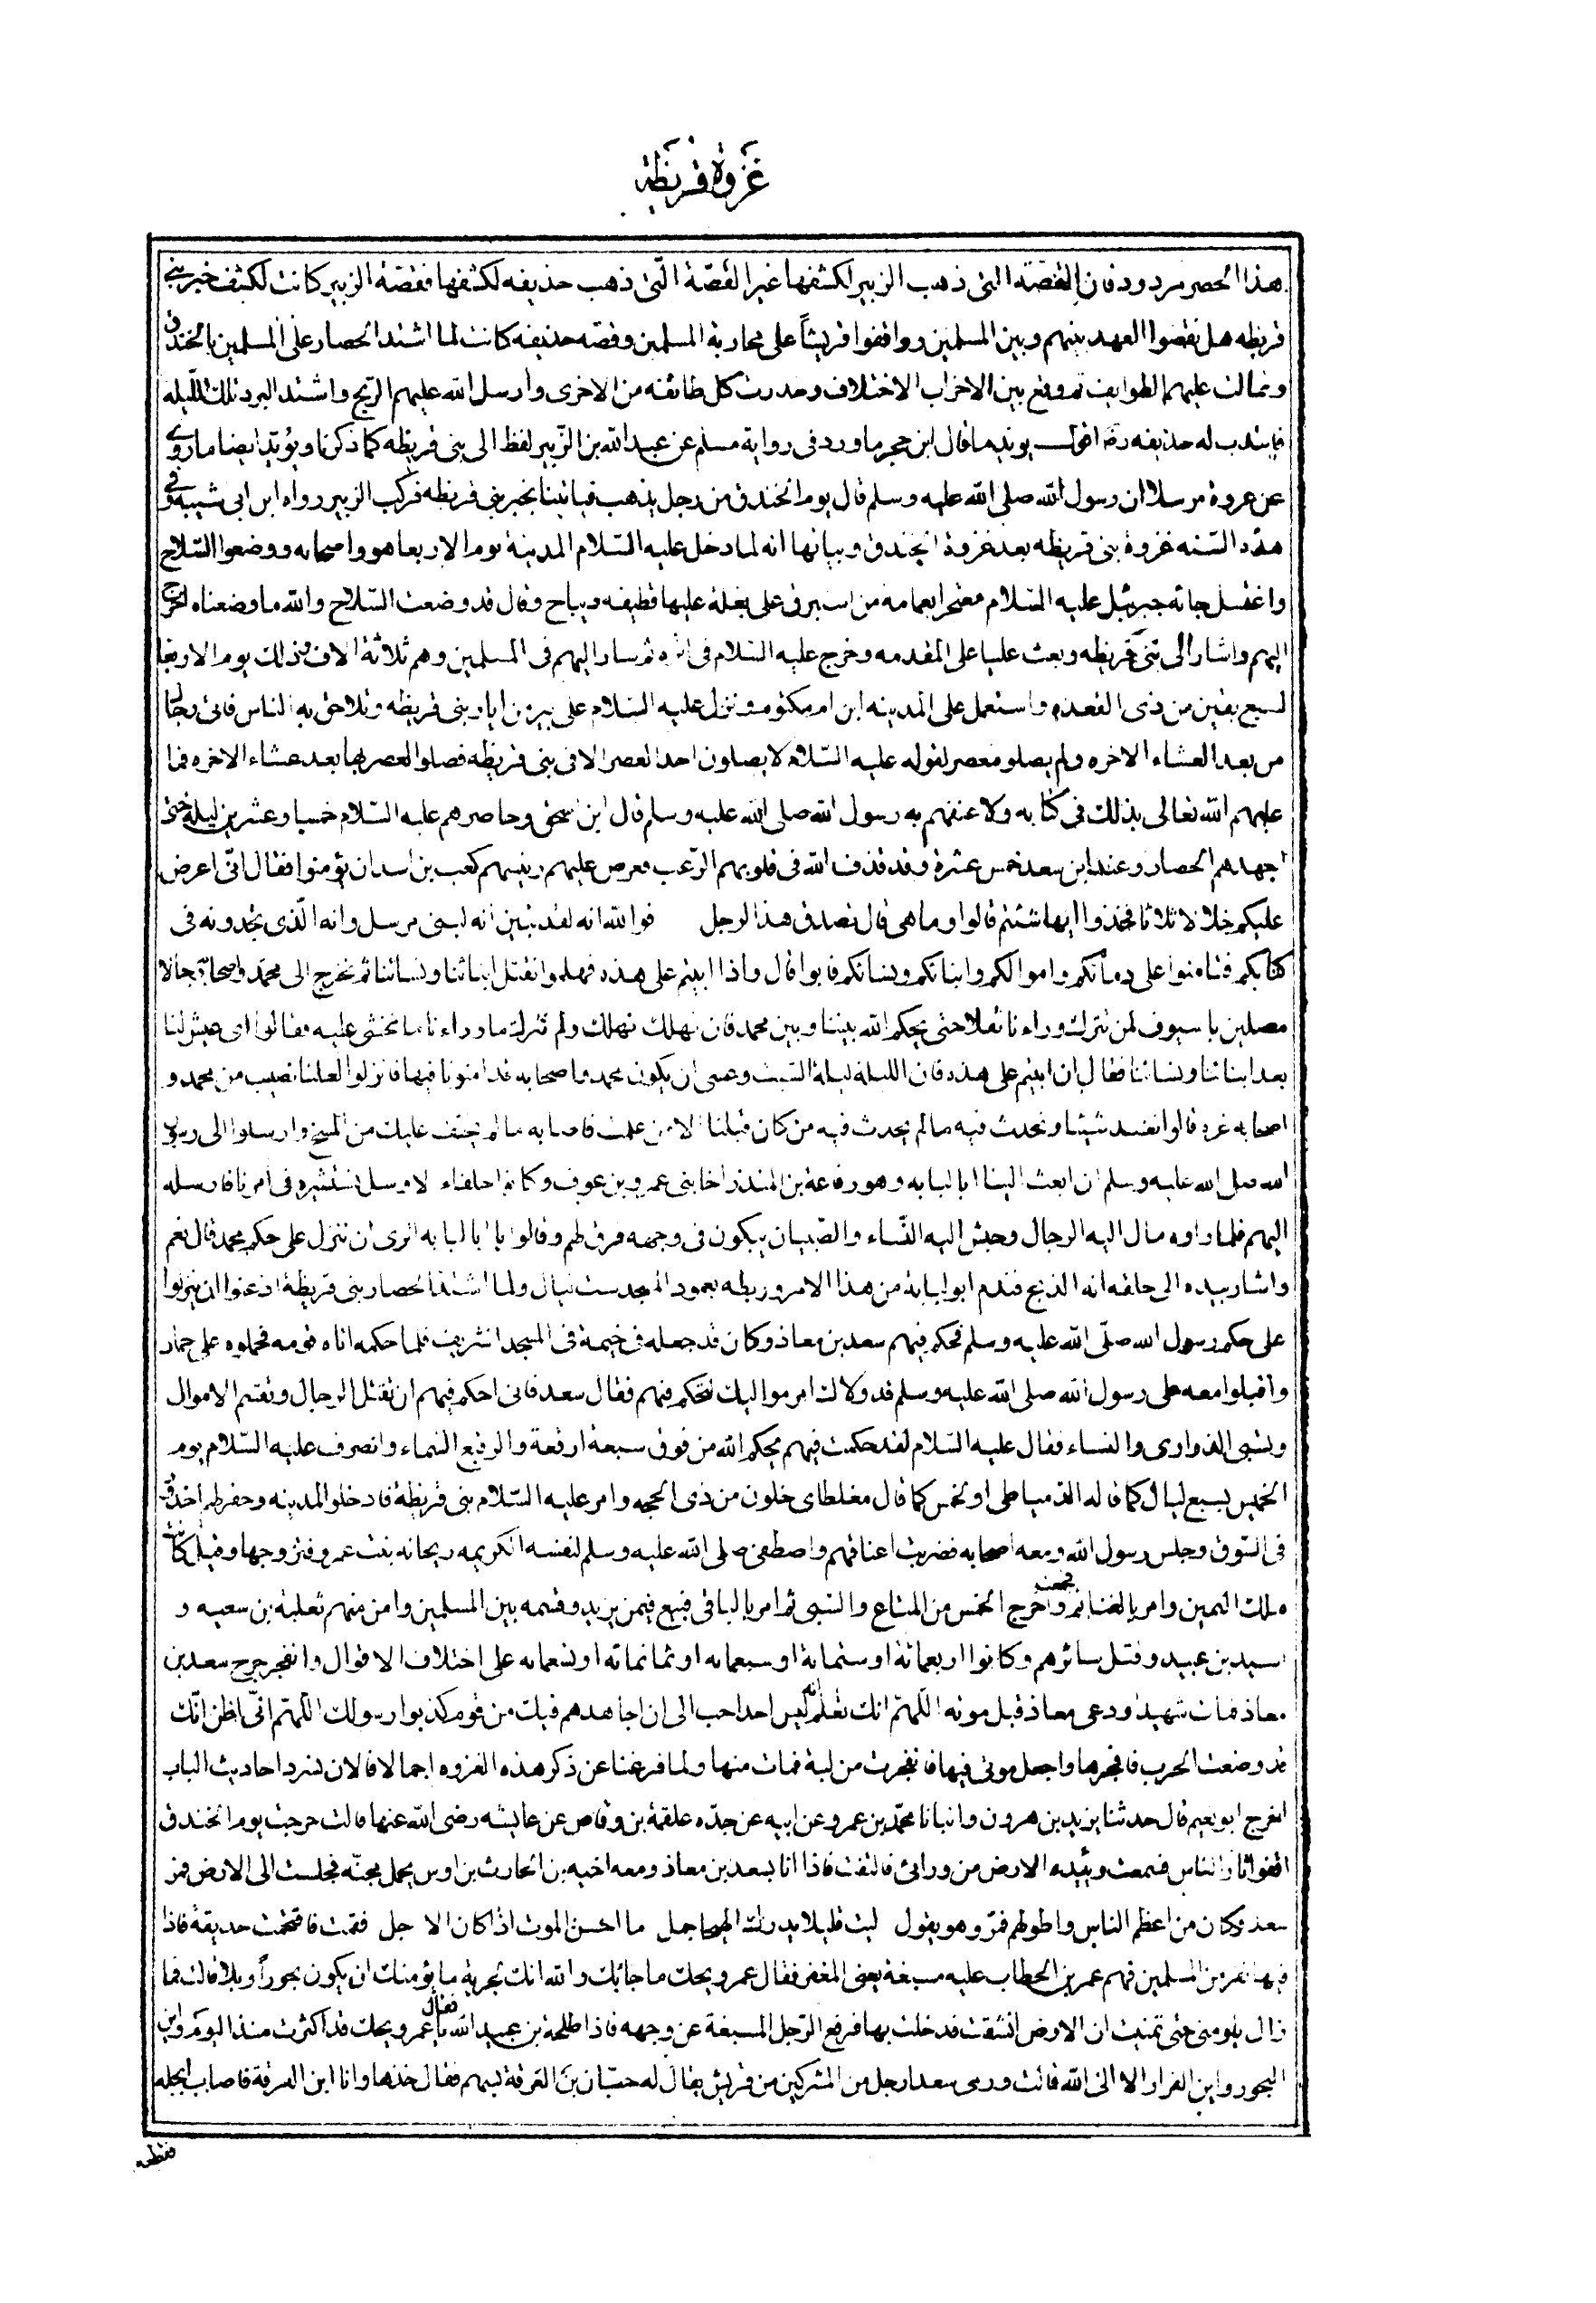 غزوة قريظة
هذا الحصر مردود فان القصة التى ذهب الزبير لكشفها غير القصّة الّتى ذهب حذيفه لكشفها فقصّة الزبير كانت لكشف خبر بنى
قريظه هل نقضوا العهد بينهم وبين المسلمين ووافقوا قريشاً على محاربة المسلمين وقصّه حذيفه كانت لما اشتد الحصار على المسلمين بالخندق
وتمالت عليهم الطوايف ثم وقع بين الاحزاب الاختلاف وحذرت كل طائفه من الاخرى وأرسل الله عليهم الرّيح واشتد البرد تلك اللّيله
فانتدب له حذيفه يويد ما قال ابن حجر ما ورد فى رواية مسلم عن عبد الله بن الزّبير لفظ الى بنى قريظه كما ذكرنا ويؤيّد ايضا ما روى
عن عروة مرسلا ان رسول الله صلى الله عليه وسلم قال يوم الخندق من رجل يذهب فياتينا بخبر بنى قريظه فركب الزبير رواه ابن ابى شيبه وفى
هذه السّنه غزوة بنى قريظه بعد غزوة الخندق وبيانها انه لما دخل عليه السّلام المدينة يوم الاربعا هو واصحابه ووضعوا السّلاح
واغتسل جائه جبرئيل عليه السّلام معتجرا بعمامه من استبرق على بغلة عليها قطيفه ديباج وقال قد وضعت السّلاح والله ما وضعناه اخرج
اليهم واشار الى بنى قريظه وبعث عليا على المقدمه وخرج عليه السّلام فى اثره ثم سار اليهم فى المسلمين وهم ثلاثة الاف وذلك يوم الاربعا
لسبع بقين من ذى القعده واستعمل على المدينه ابن ام مكتوم ونزل عليه السّلام على بير من ابار بنى قريظه وتلاحق به الناس فاتى رجال
من بعد العشاء الاخره ولم يصلو معصر لقوله عليه السّلام لا يصلون احد العصر الا فى بنى قريظه فصلو العصر بها بعد عشاء الاخره فما
عليهم الله تعالى بذلك فى كتابه ولا عنفهم به رسول الله صلى الله عليه وسلم قال ابن اسحق وحاصرهم عليه السّلام خمسا وعشرين ليلة حتى
اجهدهم الحصار وعند ابن سعد خمس عشرة وقد قذف الله فى قلوبهم الرّعب فعرض عليهم رئيسهم كعب بن اسد ان يؤمنوا فقال انّى اعرض
عليكم خلالا ثلاثا فخذوا ايها شئتم قالوا وما هى قال نصدق هذا الرجل فوالله انه لقد تبين انه لنبى مرسل وانه الّذى تجدونه فى
كتابكم فتامنوا على دمائكم واموالكم وابنائكم ونسائكم فابوا قال واذا ابيتم على هذه فهلموا نقتل ابنائنا ونسائنا ثم نخرج الى محمّد واصحابه رجالا
مصلتين باسيوف لم نترك وراءنا ثقلا حتى يحكم الله بيننا وبين محمد فان نهلك نهلك ولم نترك ما وراءنا ما نخشى عليه فقالوا اى عيش لنا
بعد ابنائنا ونسائنا فقال فان ابيتم على هذه فان الليلة ليلة السّبت وعسى ان يكون محمد واصحابه قد امنونا فيها فانزلوا لعلنا نصيب من محمد و
اصحابه غرة قالوا نفسد شيئا ونحدث فيه مالم يحدث فيه من كان قبلنا الا من علمت فاصابه ما لم يخف عليك من المسخ وارسلوا الى رسول
الله صلى الله عليه وسلم ان ابعث الينا ابا لبابه وهو رفاعة بن المنذر اخا بنى عمرو بن عوف وكانوا حلفاء لاوس نستشيره فى امرنا فارسله
اليهم فلما راوه مال اليه الرجال وجهش اليه النّساء والصّبيان يبكون فى وجهه فرق لهم وقالوا يا ابا لبابه اترى ان ننزل على حكم محمد قال نعم
واشار بيده الى حلقه انه الذبح فندم ابو لبابة من هذا الامر وربطه بعمود المسجد ست ليال ولما اشتد الحصار بنى قريظة اذعنوا ان ينزلوا
على حكم رسول الله صلّى الله عليه وسلم فحكم فيهم سعد بن معاذ وكان قد جعله فى خيمة فى المسجد الشريف فلما حكمه اتاه قومه فحملوه على حمار
واقبلوا معه على رسول الله صلى الله عليه وسلم قد ولاك امر مواليك لتحكم فيهم فقال سعد فانى احكم فيهم ان تقتل الرجال وتقسّم الاموال
وتسبى الذرارى والنساء فقال عليه السّلام لقد حكمت فيهم بحكم الله من فوق سبعة ارقعة والرقيع السّماء وانصرف عليه السّلام يوم
الخميس لسبع ليال كما قاله الدّمياطى او لخمس كما قال مغلطاى خلون من ذى الحجه وامر عليه السّلام بنى قريظة فادخلو المدينه وحفر لهم اخدود
فى السّوق وجلس رسول الله ومعه اصحابه فضربت اعناقهم واصطفى صلى الله عليه وسلم لنفسه الكريمه ريحانه بنت عمرو فتزوجها وقيل كانت
ملك اليمين وامر بالغنائم فجمعت واخرج الخمس من المتاع والسّبى ثم امر بالباقى فبيع فيمن يزيد وقسمه بين المسلمين وامن منهم ثعلبة بن سعيه و
اسيد بن عبيد وقتل سائرهم وكانوا اربعمائة او ستمائة او سبعمائه او ثمانمائه او تسعمائه على اختلاف الاقوال وانفجر جرح سعد بن
معاذ فمات شهيدا ودعى معاذ قبل موته اللّهمّ انك تعلم انه ليس احد احب الى ان اجاهدهم فيك من قوم كذبوا رسولك اللّهمّ انّى اظن انّك
قد وضعت الحرب فافجرها واجعل موتى فيها فانفجرت من لبة فمات منها ولما فرغنا عن ذكر هذه الغزوه اجمالا فالان نسرد احاديث الباب
اخرج ابو نعيم قال حدثنا يزيد بن هرون وانبانا محمّد بن عمرو عن ابيه عن جدّه علقمة بن وقاص عن عايشه رضى الله عنها قالت خرجت يوم الخندق
اقفوا اثار الناس فسمعت وئيده الارض من ورائى فالتفت فاذا انا بسعد بن معاذ ومعه اخيه بن الحارث بن اوس يحمل مجنّه فجلست الى الارض فمر
سعد وكان من اعظم الناس واطولهم فمرّ وهو يقول ليت قليلا يدرك الهيجا جمل ما احسن الموت اذا كان الاجل فقمت فاقتحمت حديقة فاذا
فيها نفر من المسلمين فيهم عمر بن الخطاب عليه مسبغة يعنى المغفر فقال عمر ويحك ما جائك والله انك لجرية ما يؤمنك ان يكون بحوراً وبلا قالت فما
زال يلومنى حتى تمنيت ان الارض انشقت فدخلت بها فرفع الرّجل المسبغة عن وجهه فاذا طلحة بن عبيد الله فقال يا عمر ويحك قد اكثرت منذ اليوم واين
البحور واين الفرار الا الى الله قالت ورمى سعدا رجل من المشركين من قريش يقال له حبّان بن العرقة بسهم فقال خذها وانا ابن العرقة فاصاب اكحله
فقطعه